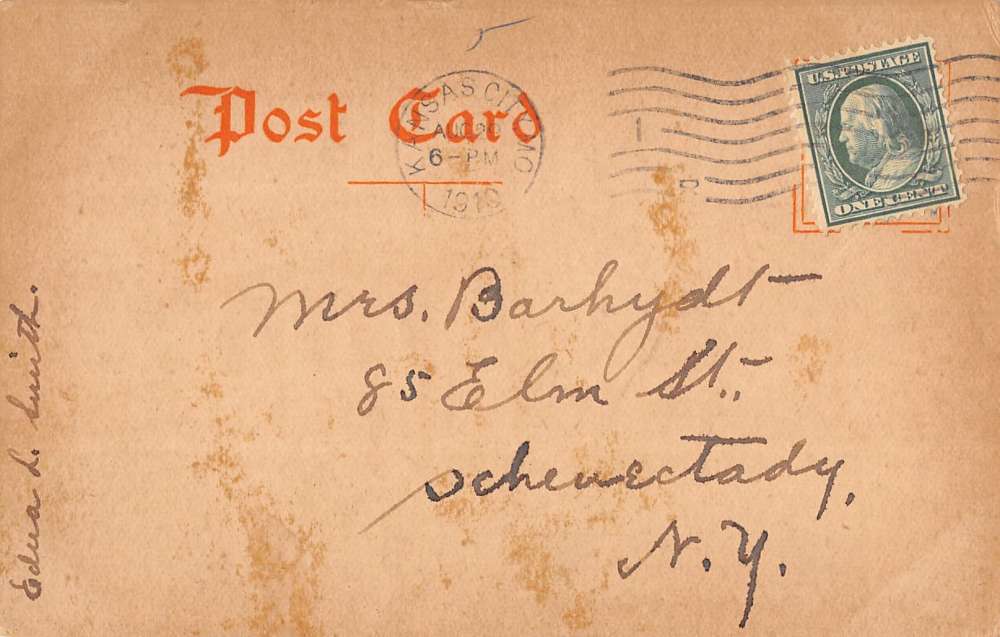 Post Card
KANSAS CITY, MO
6-PM
U.S. POSTAGE
ONE CENT
1
D
Mrs. Barhydt
85 Elm St.,
Schenectady,
N.Y.
Edna L. Smith.